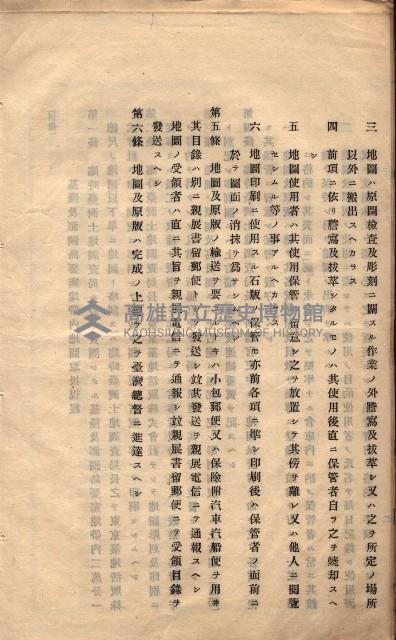 三　地圖ハ原圖檢査及彫刻ニ關スル作業ノ外謄寫及拔萃シ又ハ之ヲ所定ノ場所
以外ニ搬出スヘカラス
四　前項ニ依リ謄寫及拔萃シタルモノハ其使用後直ニ保管者自ラ之ヲ燒却スヘ
シ
五　地圖使用者ハ其使用保管ニ留意シ之ヲ放置シテ其傍ヲ離レ又ハ他人ニ閱覽
セシムル等ノ事アルヘカラス
六　地圖印刷ニ使用スル石版ノ保管モ亦前各項ニ準シ印刷後ハ保管者ノ面前ニ
於テ圖面ノ消抹ヲ爲サシムヘシ
第五條　地圖及原版ノ輸送ヲ要スルトキハ小包郵便又ハ保險附汽車汽船便ヲ用ヰ
其目錄ハ別ニ親展書留郵便トシテ發送シ竝其發送ヲ親展電信ニテ通報スヘシ
地圖ノ受領者ハ直ニ其旨ヲ親展電信ニテ通報シ竝親展書留郵便ニテ受領目錄ヲ
發送スヘシ
第六條　地圖及原版ハ完成ノ上都テ之ヲ臺灣總督ニ進達スヘシ
高雄市立歷史博物館
KAOHSIUNG MUSEUM OF HISTORY